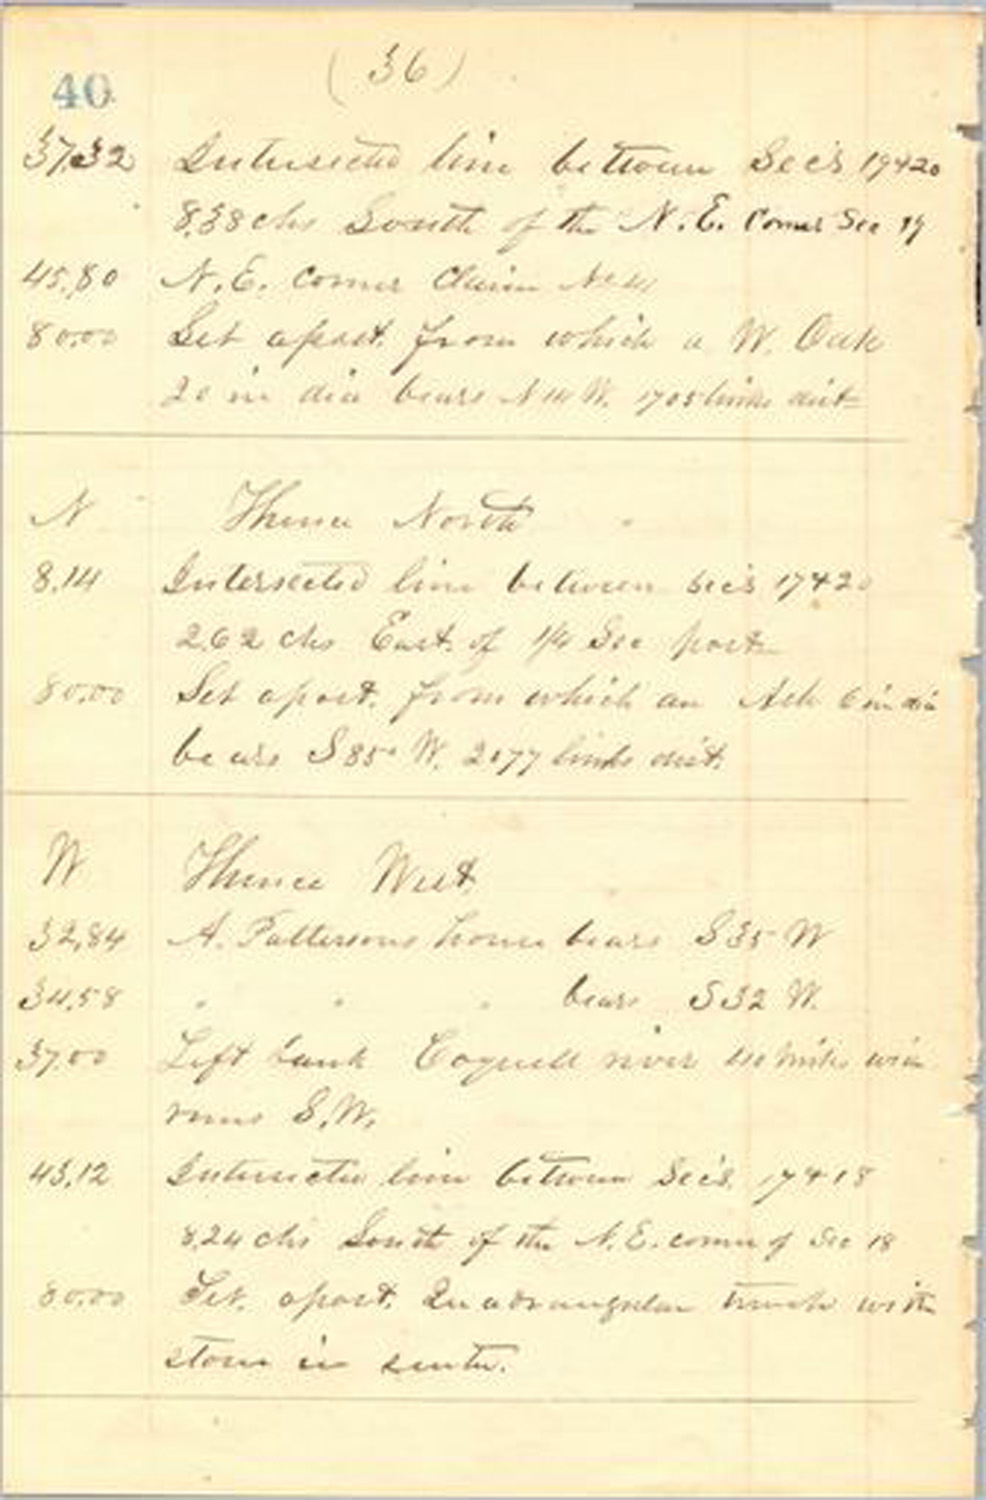 (36)
40
37.32 Intersected line between Sec's 19 & 20
8.38 chs South of the N.E. Corner Sec 19
45.80 N.E. Corner Claim No 41
80.00 Set a post from which a W. Oak
20 in dia bears N 14 W. 1705 links dist
N Thence North
8.14 Intersected line between Sec's 17 & 20
2.62 chs East of 1/4 Sec post
80.00 Set a post from which an Ash 6 in dia
bears S 85° W. 2077 links dist.
W Thence West
32.84 A. Pattersons house bears S 35 W
34.58 " " " bears S 32 W.
37.00 Left bank Coquell river links wide
runs S.W.
43.12 Intersected line between Sec's 17 & 18
8.24 chs South of the N.E. corner of Sec 18
80.00 Set a post Quadrangular trench with
stone in center.